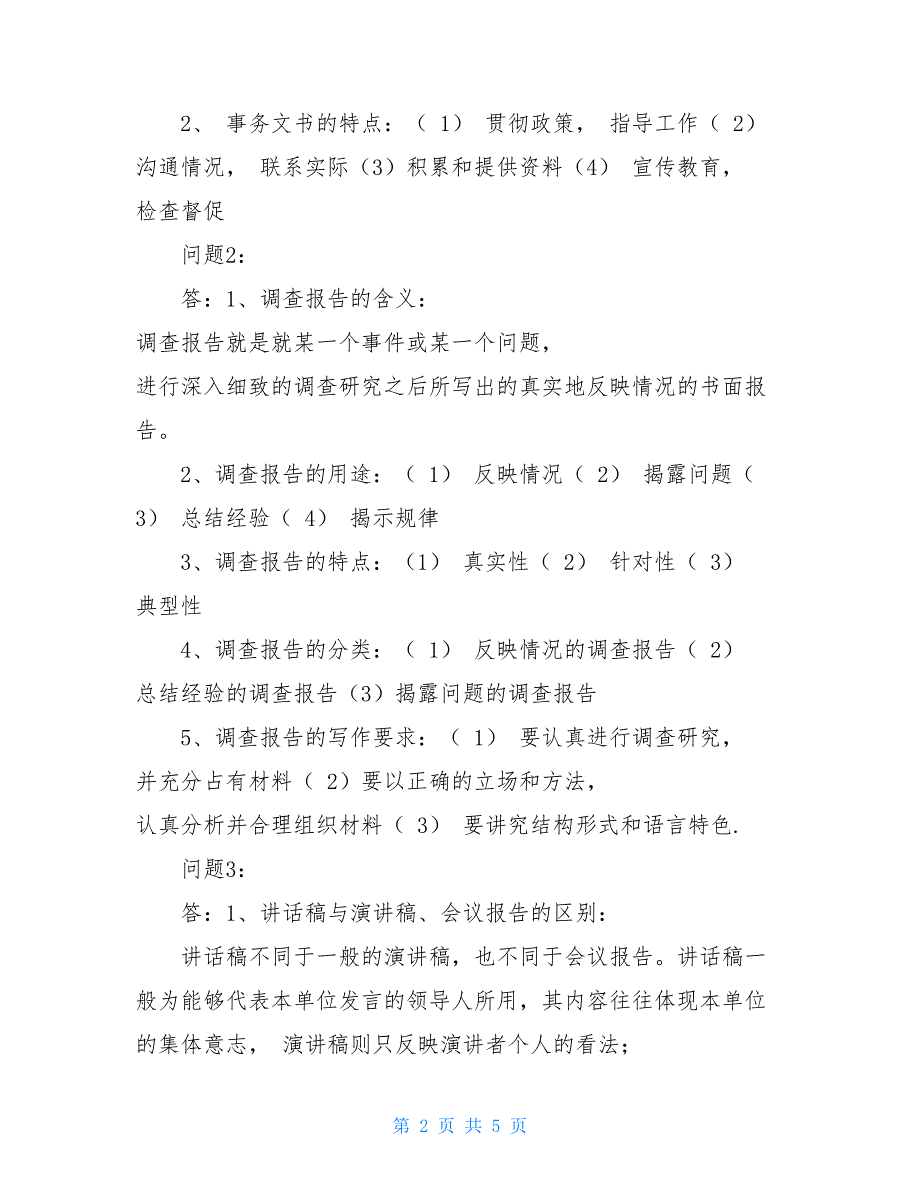 2、 事务文书的特点：（ 1） 贯彻政策， 指导工作（ 2）
沟通情况， 联系实际（3）积累和提供资料（4） 宣传教育，
检查督促
问题2：
答：1、调查报告的含义：
调查报告就是就某一个事件或某一个问题，
进行深入细致的调查研究之后所写出的真实地反映情况的书面报
告。
2、调查报告的用途：（ 1） 反映情况（ 2） 揭露问题（
3） 总结经验（ 4） 揭示规律
3、调查报告的特点：（1） 真实性（ 2） 针对性（ 3）
典型性
4、调查报告的分类：（ 1） 反映情况的调查报告（ 2）
总结经验的调查报告（3）揭露问题的调查报告
5、调查报告的写作要求：（ 1） 要认真进行调查研究，
并充分占有材料（ 2）要以正确的立场和方法，
认真分析并合理组织材料（ 3） 要讲究结构形式和语言特色.
问题3：
答：1、讲话稿与演讲稿、会议报告的区别：
讲话稿不同于一般的演讲稿，也不同于会议报告。讲话稿一
般为能够代表本单位发言的领导人所用，其内容往往体现本单位
的集体意志， 演讲稿则只反映演讲者个人的看法；
第 2 页 共 5 页